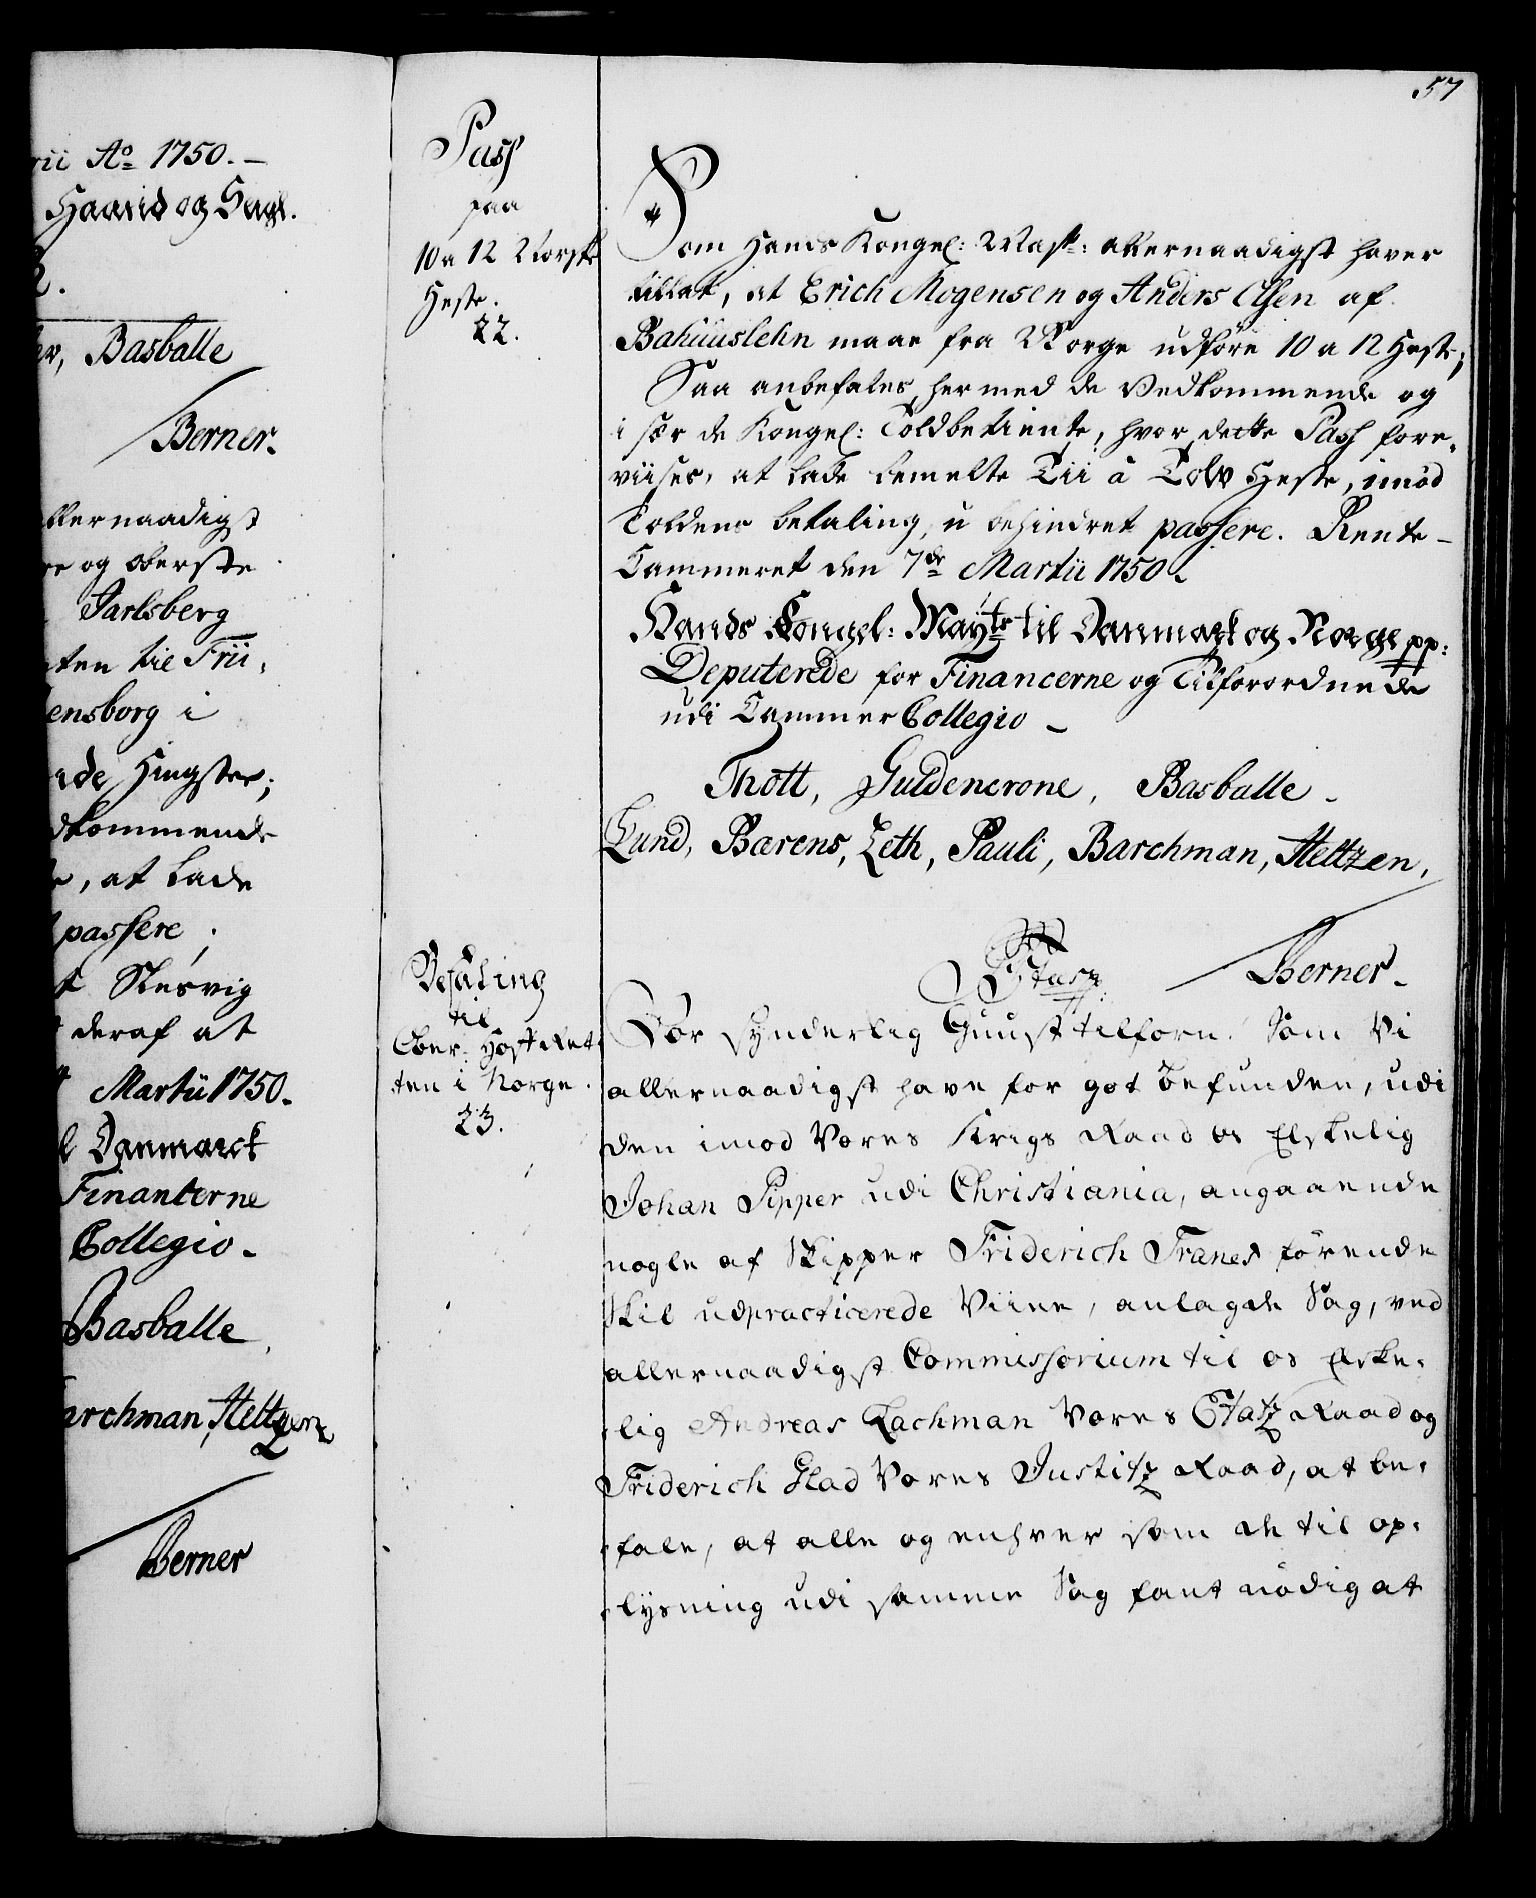 rii Ao 1750.–
Haand og Segl.
R.
er, Basballe
Berner.
allernaadigst
re og oberste
Jarlsberg
ten til Frii,
ensborg i
de Hingster;
dkommende
, at lade
passere;
Slesvig
deraf at
Martii 1750.
l Danmarck
Financerne
Collegio.
Basballe,
archman, Heltzen,
Berner
Pass
paa
10 a 12 Norske
Heste.
22.
Befaling
til
Ober: Hof Ret,
ten i Norge.
23.
57
Som Hands Kongel: Mayt: allernaadigst haver
tillat, at Erich Mogensen og Anders Olsen af
Bahuuslehn maae fra Norge udføre 10 a 12 Heste;
Saa anbefales hermed de Vedkommende og
i sær de Kongel: Toldbetiente, hvor dette Pass fore,
viises, at lade bemelte Tii à Tolv Heste, imod
Toldens betaling, u behindret passere. Rente-
Cammeret den 7de Martii 1750.
Hands Kongel: Mayts til Danmark og Norge pp:
Deputerede for Financerne og Tilforordnede
udi Cammer Collegio –
Thott, Guldencrone, Basballe.
Lund, Bærens, Leth, Pauli, Barchman, Heltzen,
Berner.
Vor synderlig Gunst tilforn. Som Vi
allernaadigst have for got befunden, udi
den imod Vores Krigs Raad os Elskelig
Johan Pipper udi Christiania, angaaende
nogle af Skipper Friderich Tranes førende
Skil udpracticerede Viine, anlagde Sag, ved
allernaadigst Commissorium til os Elske,
lig Andreas Lachman Vores Etatz Raad og
Friderich Glad Vores Justitz Raad, at be,
fale, at alle og enhver som de til op,
lysning udi samme Sag fant nödig at